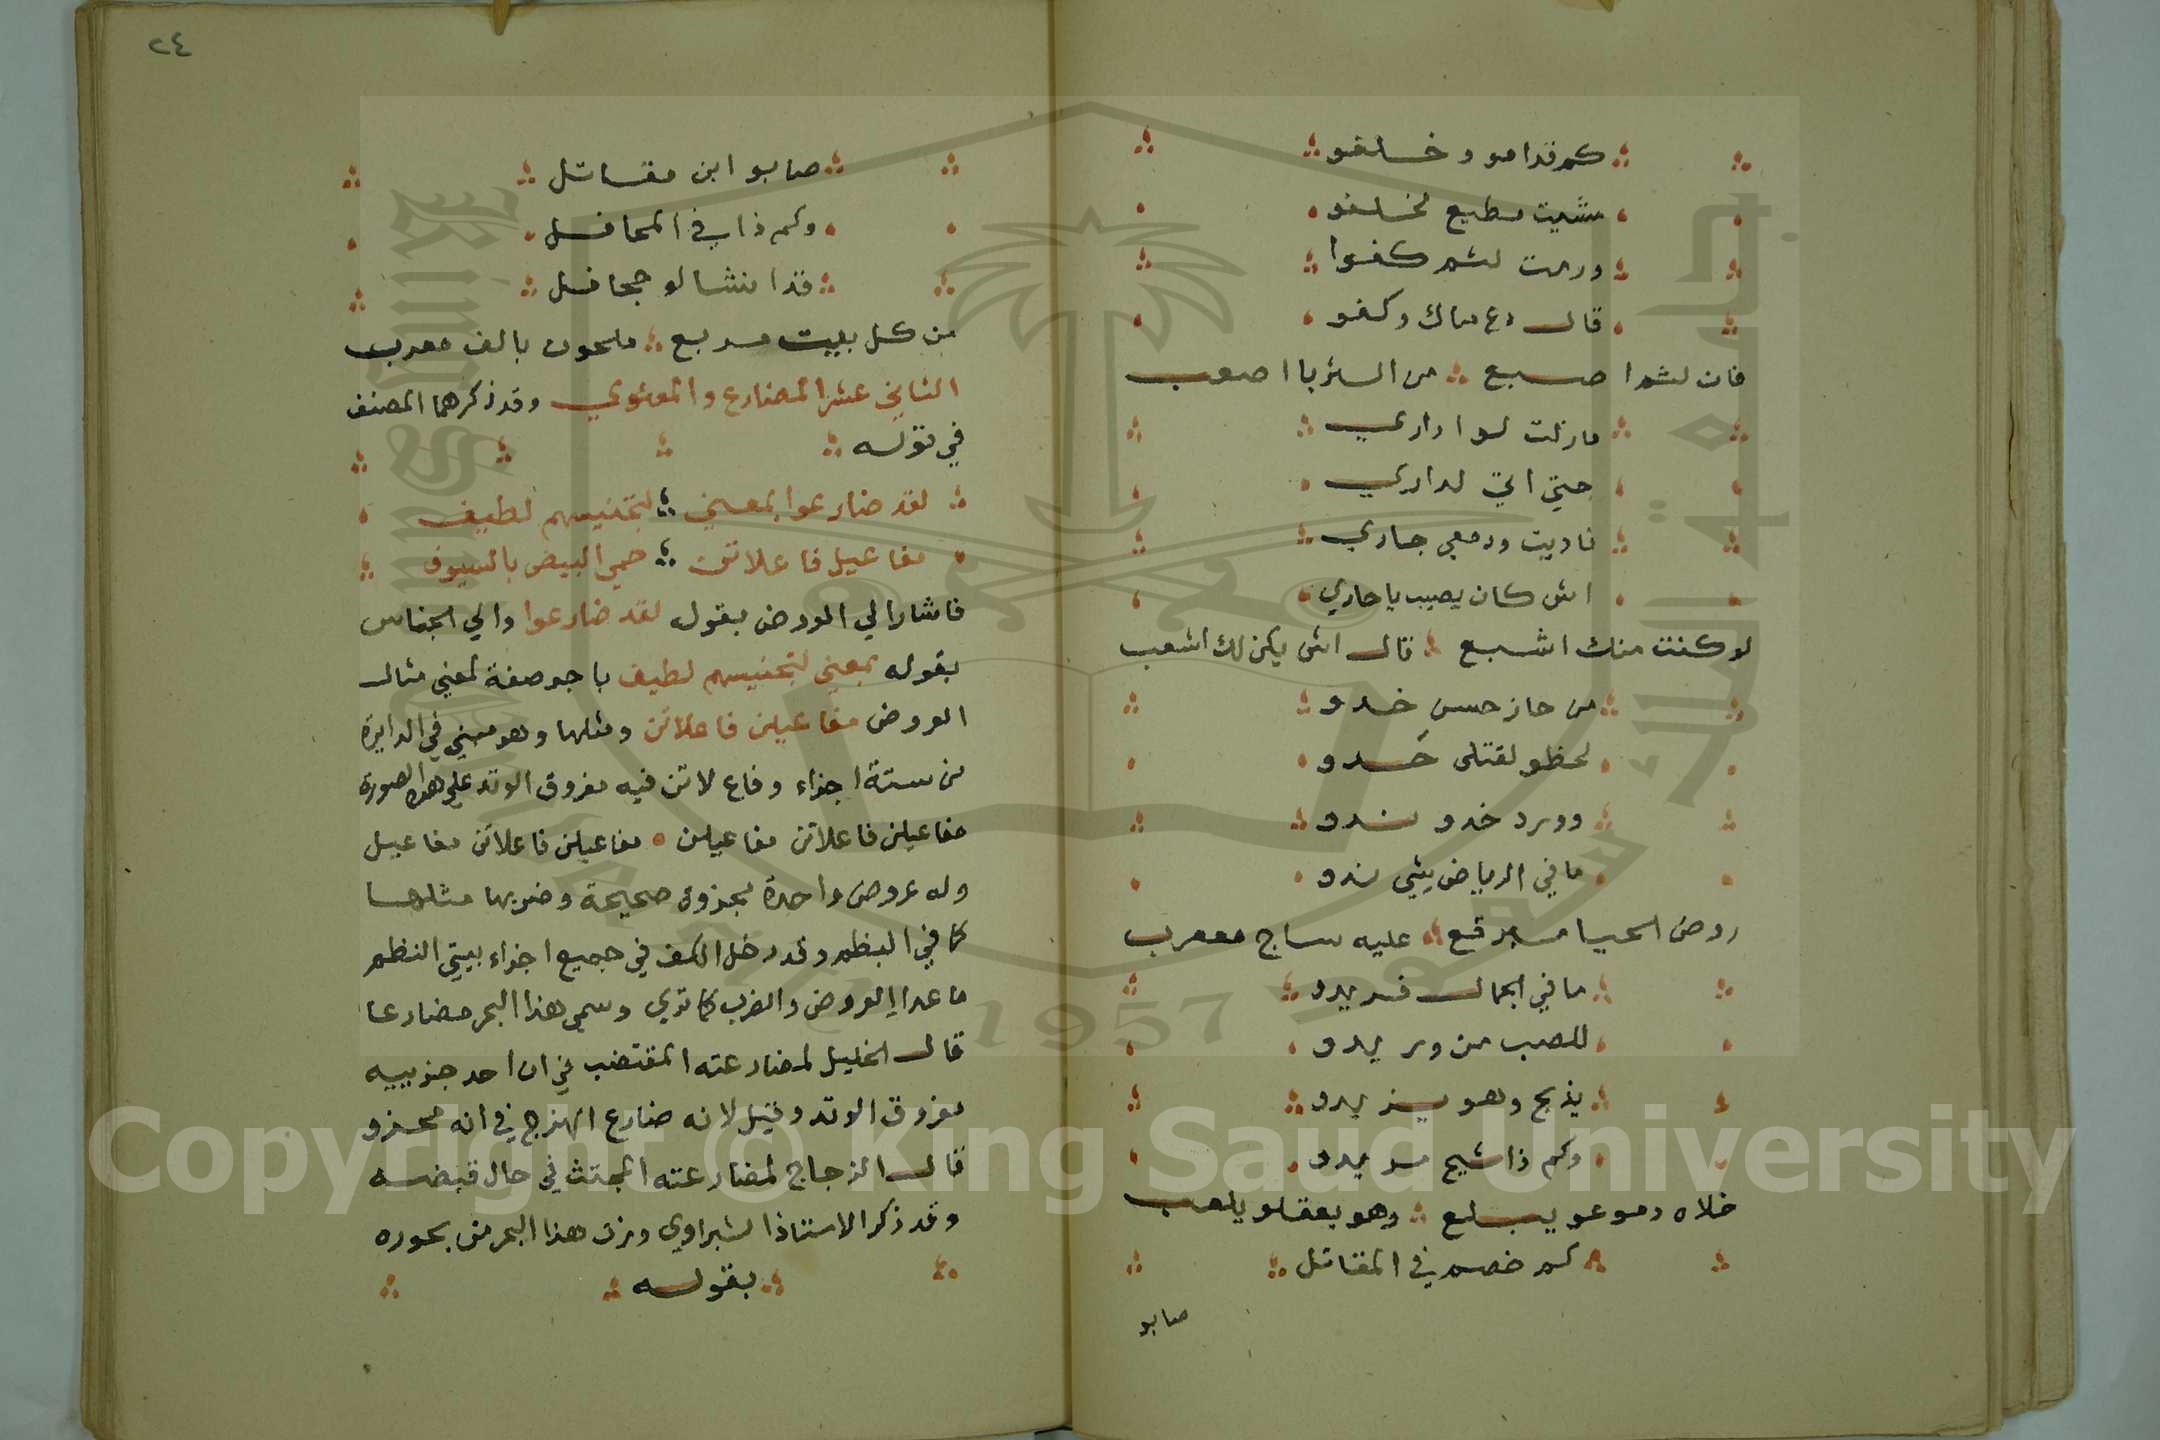 كم قدامو وخلفو
مشيت مطيع لخلفو
ورمت لثم كفوا
قال دع ماك وكفو
فان لثم اصبع من الثريا اصعب
مازلت لو اداري
حتي اتي لداري
ناديت ودمعي جاري
اش كان يصيب ياجاري
لو كنت منك اشبع قال اش يكن لك اشعب
من حاز حسن خدو
لحظو لقتلي حدو
وورد خدو ندو
ما في الرياض يشي ندو
روض الحيا مبرقع عليه ساج معرب
ما في الجمال فريدو
للصب من وريدو
يذبح وهو يزيدو
وكم ذا شيح مريدو
خلاه دموعو يبلع وهو بعقلو يلعب
كم خصم في المقاتل
صابو
٢٤
صابو ابن مقاتل
وكم ذا في المحافل
قد انشا لو جحافل
من كل بيت مربع ملحون بالف معرب
الثاني عشر المضارع والمعنوي وقد ذكرهما المصنف
في قوله
لقد ضارعوا بمعني لتجنيسهم لطيف
مفاعيل فاعلاتن حمي البيض بالسيوف
فاشار الي العروض بقول لقد ضارعوا والي الجناس
بقوله بمعني لتجنيسهم لطيف باجر صفة لمعني مثال
العروض مفاعيلن فاعلاتن ومثلها وهو مبني في الدايرة
من ستة اجزاء وفاع لاتن فيه مفروق الوتد علي هذه الصورة
مفاعيلن فاعلاتن مفاعيلن مفاعيلن فاعلاتن مفاعيل
وله عروض واحدة مجزوة صحيحة وضربها مثلها
كما في النظم وقد دخل الكف في جميع اجزاء بيتي النظم
ما عدا العروض والضرب كما تري وسمي هذا البحر مضارعا
قال الخليل لمضارعته المقتضب في ان احد جزييه
مفروق الوتد وقيل لانه ضارع الهزج في انه مجزو
قال الزجاج لمضارعته المجتث في حال قبضه
وقد ذكر الاستاذ الشبراوي وزن هذا البحر من بحوره
بقوله
Copyright © King Saud University
1957